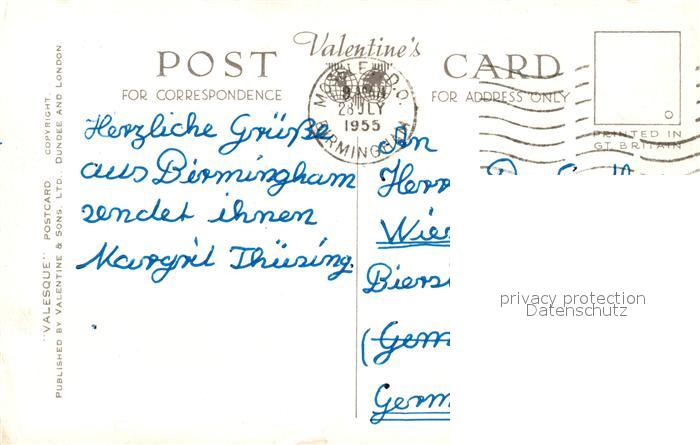 POST Valentine's CARD
FOR CORRESPONDENCE
FOR ADDRESS ONLY
28 JLY
1955
BIRMINGHAM
PRINTED IN
GT BRITAIN
"VALESQUE" POSTCARD COPYRIGHT.
PUBLISHED BY VALENTINE & SONS, LTD., DUNDEE AND LONDON
Herzliche Grüße
aus Birmingham
sendet ihnen
Margrit Thüsing.
An
Herr
privacy protection
Datenschutz